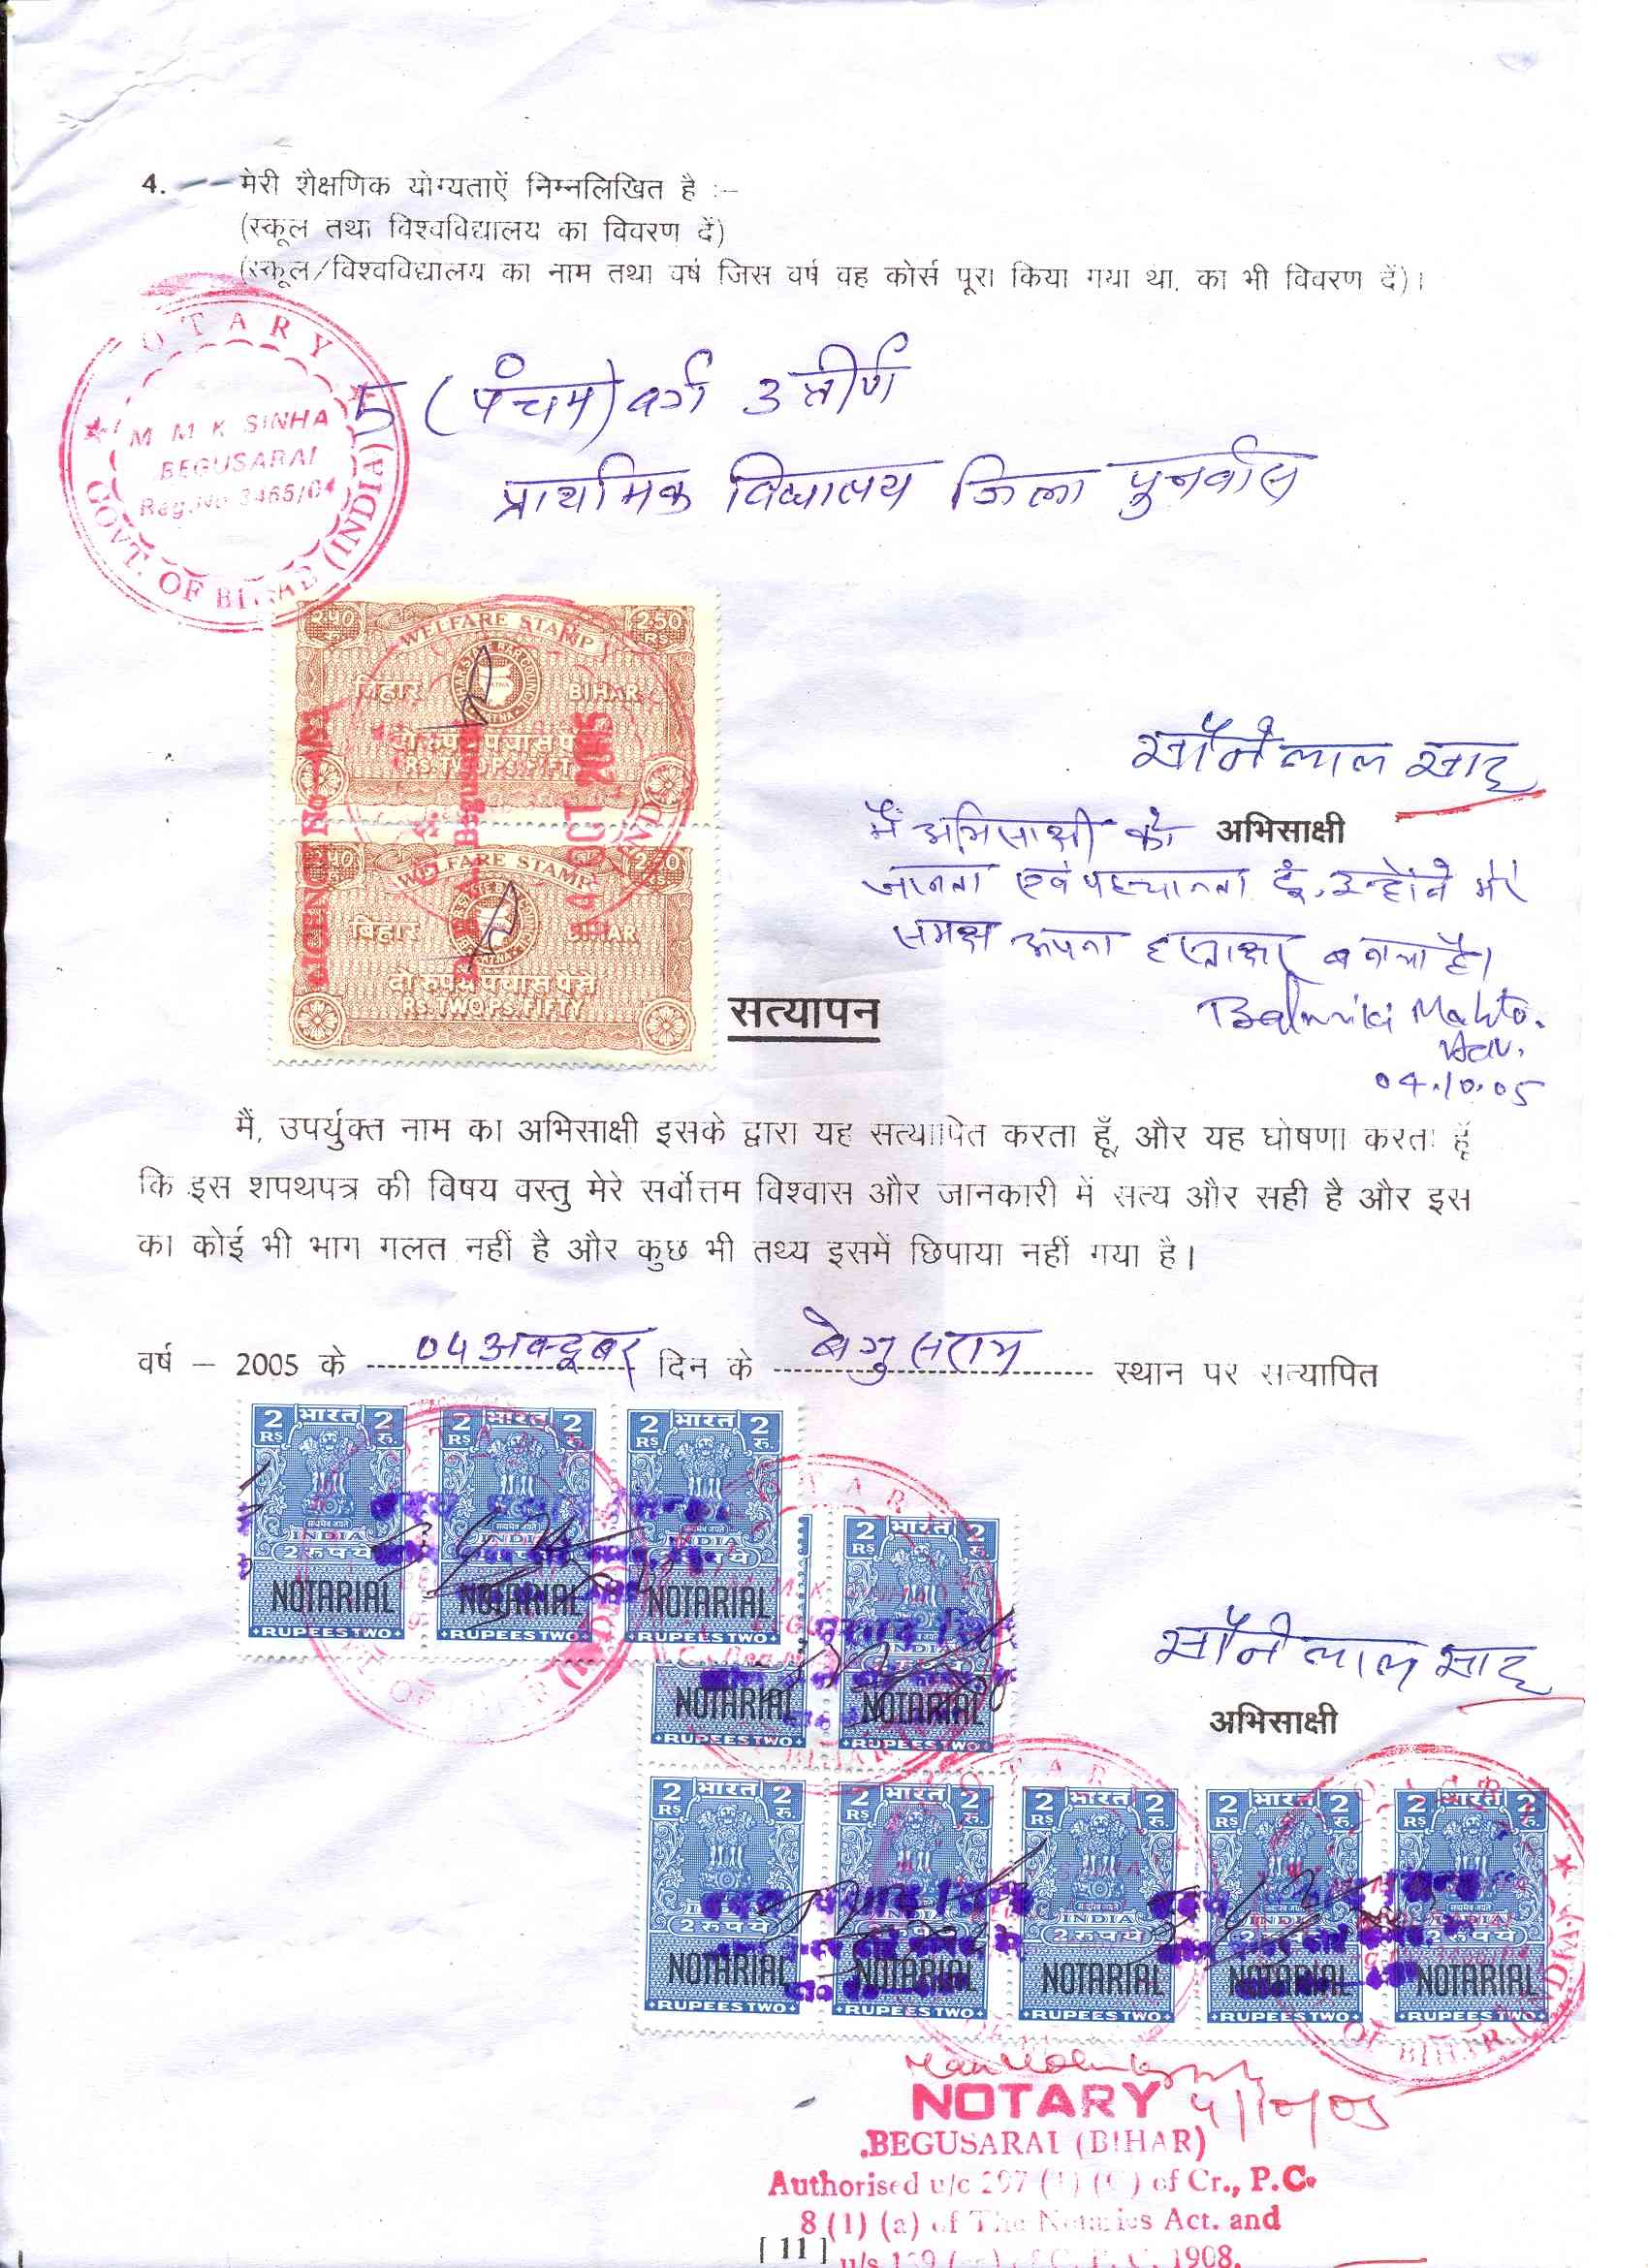 4. मेरी शैक्षणिक योग्यताऐं निम्नलिखित है :–
(स्कूल तथा विश्वविद्यालय का विवरण दें)
(स्कूल/विश्वविद्यालय का नाम तथा वर्ष जिस वर्ष वह कोर्स पूरा किया गया था, का भी विवरण दें)।
NOTARY
M M K SINHA
BEGUSARAI
Reg.No 3465/04
GOVT. OF BIHAR (INDIA)
5 (पंचम) वर्ग उत्तीर्ण
प्राथमिक विद्यालय जिला पुनर्वास
२.५० रु. WELFARE STAMP 2.50 RS.
बिहार BIHAR
दो रुपये पचास पैसे
RS. TWO PS. FIFTY
04 OCT 2005
WELFARE STAMP
बिहार BIHAR
दो रुपये पचास पैसे
RS. TWO PS. FIFTY
सोनेलाल साह
अभिसाक्षी
मैं अभिसाक्षी को
जानता एवं पहचानता हूँ, उन्होंने मेरे
समक्ष अपना हस्ताक्षर बनाया है।
Balmiki Mahto.
Adv.
04.10.05
सत्यापन
मैं, उपर्युक्त नाम का अभिसाक्षी इसके द्वारा यह सत्यापित करता हूँ, और यह घोषणा करता हूँ
कि इस शपथपत्र की विषय वस्तु मेरे सर्वोत्तम विश्वास और जानकारी में सत्य और सही है और इस
का कोई भी भाग गलत नहीं है और कुछ भी तथ्य इसमें छिपाया नहीं गया है।
वर्ष – 2005 के 04 अक्टूबर दिन के बेगुसराय स्थान पर सत्यापित
2 RS भारत 2 रु. 2 RS भारत 2 रु. 2 RS भारत 2 रु.
INDIA INDIA INDIA
NOTARIAL NOTARIAL NOTARIAL
RUPEES TWO RUPEES TWO RUPEES TWO
2 RS भारत 2 रु.
NOTARIAL NOTARIAL
RUPEES TWO RUPEES TWO
सोनेलाल साह
अभिसाक्षी
2 RS भारत 2 रु. 2 RS भारत 2 रु. 2 RS भारत 2 रु. 2 RS भारत 2 रु. 2 RS भारत 2 रु.
NOTARIAL NOTARIAL NOTARIAL NOTARIAL NOTARIAL
RUPEES TWO RUPEES TWO RUPEES TWO RUPEES TWO RUPEES TWO
NOTARY 4/10/05
BEGUSARAI (BIHAR)
Authorised u/c 297 (1) (C) of Cr., P.C.
8 (1) (a) of The Notaries Act. and
[ 11 ]
1908.